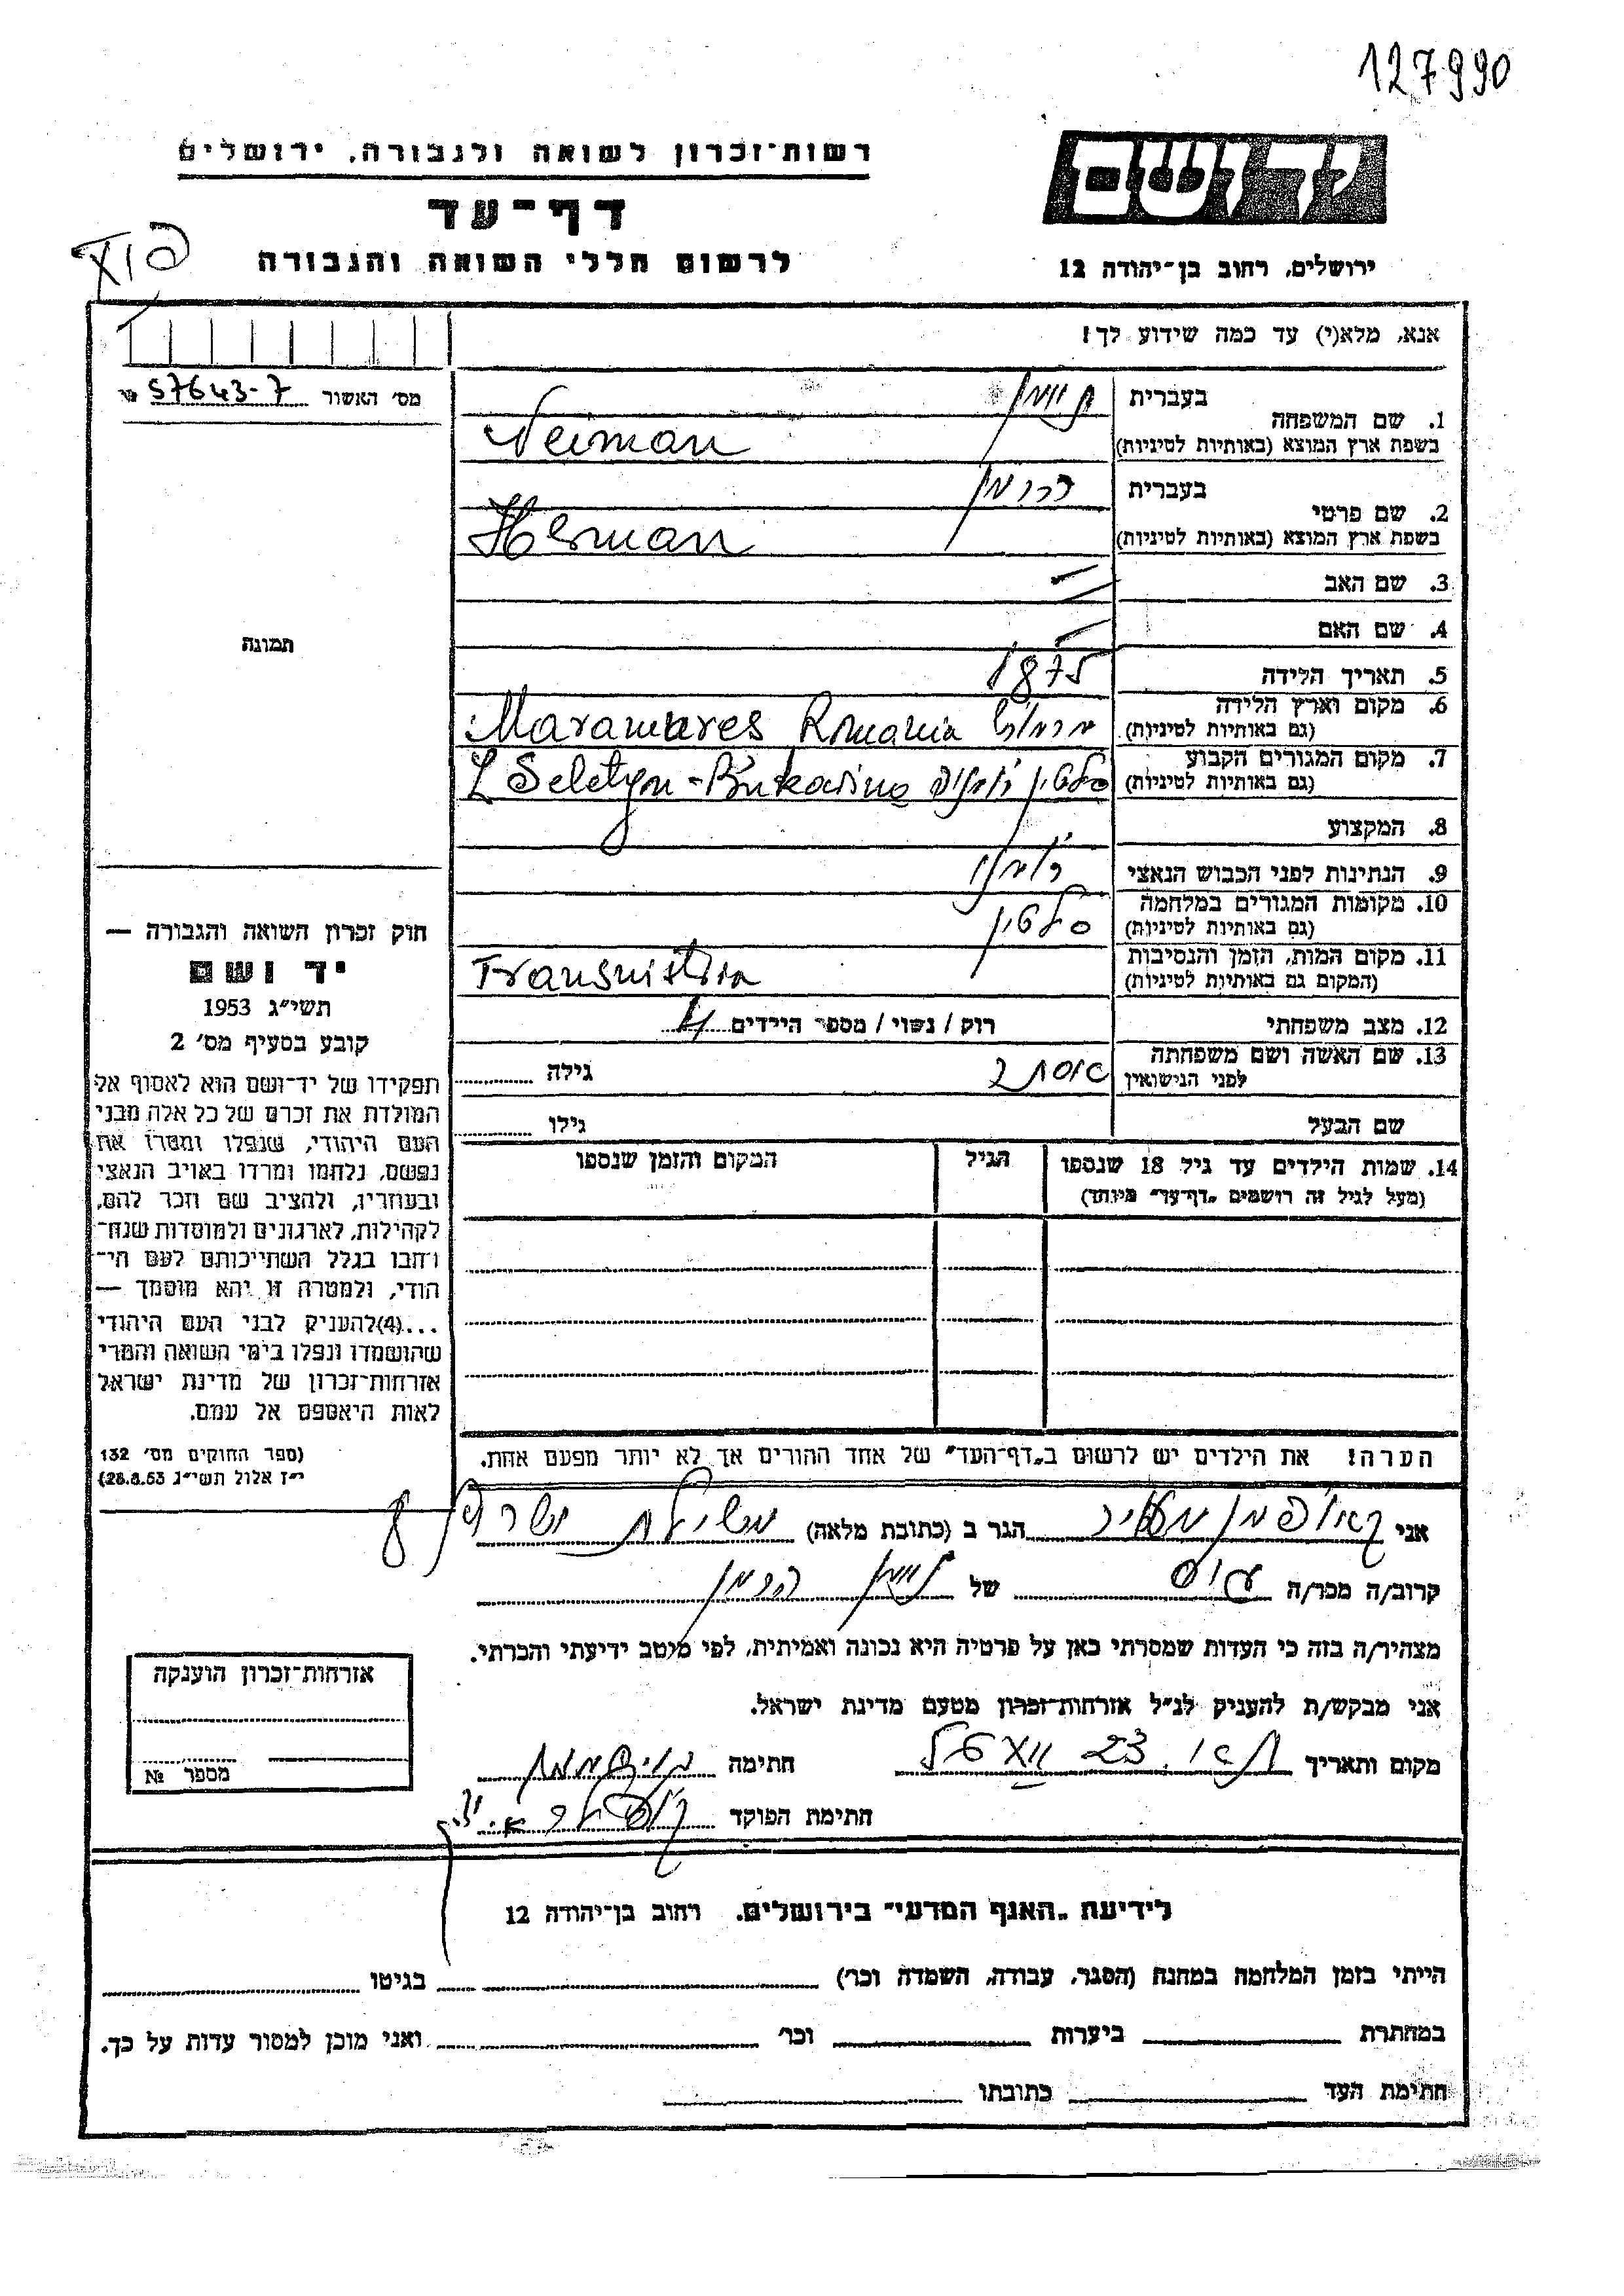 127990
רשות־זכרון לשואה ולגבורה, ירושלים
יד ושם
דף־עד
לרשום חללי השואה והגבורה
ירושלים, רחוב בן־יהודה 12
אנא, מלא(י) עד כמה שידוע לך!
מס׳ האשור 57643-7
1. שם המשפחה
בעברית נוימן
בשפת ארץ המוצא (באותיות לטיניות) Neiman
2. שם פרטי
בעברית הרמן
בשפת ארץ המוצא (באותיות לטיניות) Herman
3. שם האב
4. שם האם
תמונה
5. תאריך הלידה 1875
6. מקום וארץ הלידה
(גם באותיות לטיניות) Maramures Romania
7. מקום המגורים הקבוע
(גם באותיות לטיניות) Seletyn - Bukovina סלטין
8. המקצוע
9. הנתינות לפני הכבוש הנאצי
10. מקומות המגורים במלחמה
(גם באותיות לטיניות) סלטין
11. מקום המות, הזמן והנסיבות
(המקום גם באותיות לטיניות) Transnistria
12. מצב משפחתי רוק / נשוי / מספר הילדים 4
13. שם האשה ושם משפחתה
לפני הנישואין אסתר גילה
שם הבעל גילו
14. שמות הילדים עד גיל 18 שנספו הגיל המקום והזמן שנספו
(מעל לגיל זה רושמים „דף־עד״ מיוחד)
הערה! את הילדים יש לרשום ב„דף־העד״ של אחד ההורים אך לא יותר מפעם אחת.
חוק זכרון השואה והגבורה —
יד ושם
תשי״ג 1953
קובע בסעיף מס׳ 2
תפקידו של יד־ושם הוא לאסוף אל
המולדת את זכרם של כל אלה מבני
העם היהודי, שנפלו ומסרו את
נפשם, נלחמו ומרדו באויב הנאצי
ובעוזריו, ולהציב שם וזכר להם,
לקהילות, לארגונים ולמוסדות שנח־
רבו בגלל השתייכותם לעם הי־
הודי, ולמטרה זו יהא מוסמך —
...(4)להעניק לבני העם היהודי
שהושמדו ונפלו בימי השואה והמרי
אזרחות־זכרון של מדינת ישראל
לאות היאספם אל עמם.
(ספר החוקים מס׳ 132
י״ז אלול תשי״ג 28.8.53)
אני הגר ב (כתובת מלאה)
קרוב/ה מכר/ה של נוימן הרמן
מצהיר/ה בזה כי העדות שמסרתי כאן על פרטיה היא נכונה ואמיתית, לפי מיטב ידיעתי והכרתי.
אני מבקש/ת להעניק לנ״ל אזרחות־זכרון מטעם מדינת ישראל.
מקום ותאריך חתימה
חתימת הפוקד
אזרחות־זכרון הוענקה
מספר №
לידיעת „האגף המדעי״ בירושלים, רחוב בן־יהודה 12
הייתי בזמן המלחמה במחנה (הסגר, עבודה, השמדה וכו׳) בגיטו
במחתרת ביערות וכו׳ ואני מוכן למסור עדות על כך.
חתימת העד כתובתו